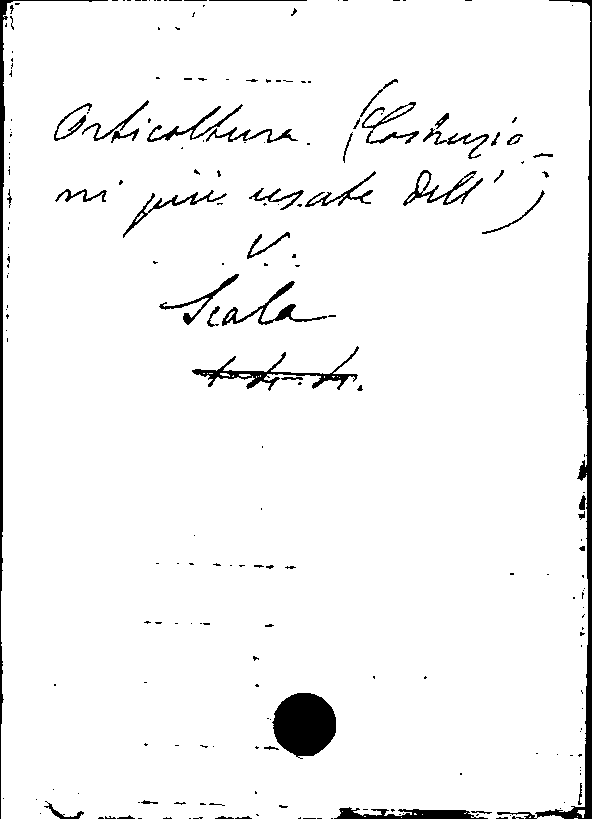 Orticoltura. (Costruzio-
ni più usate dell')
V.
Scala